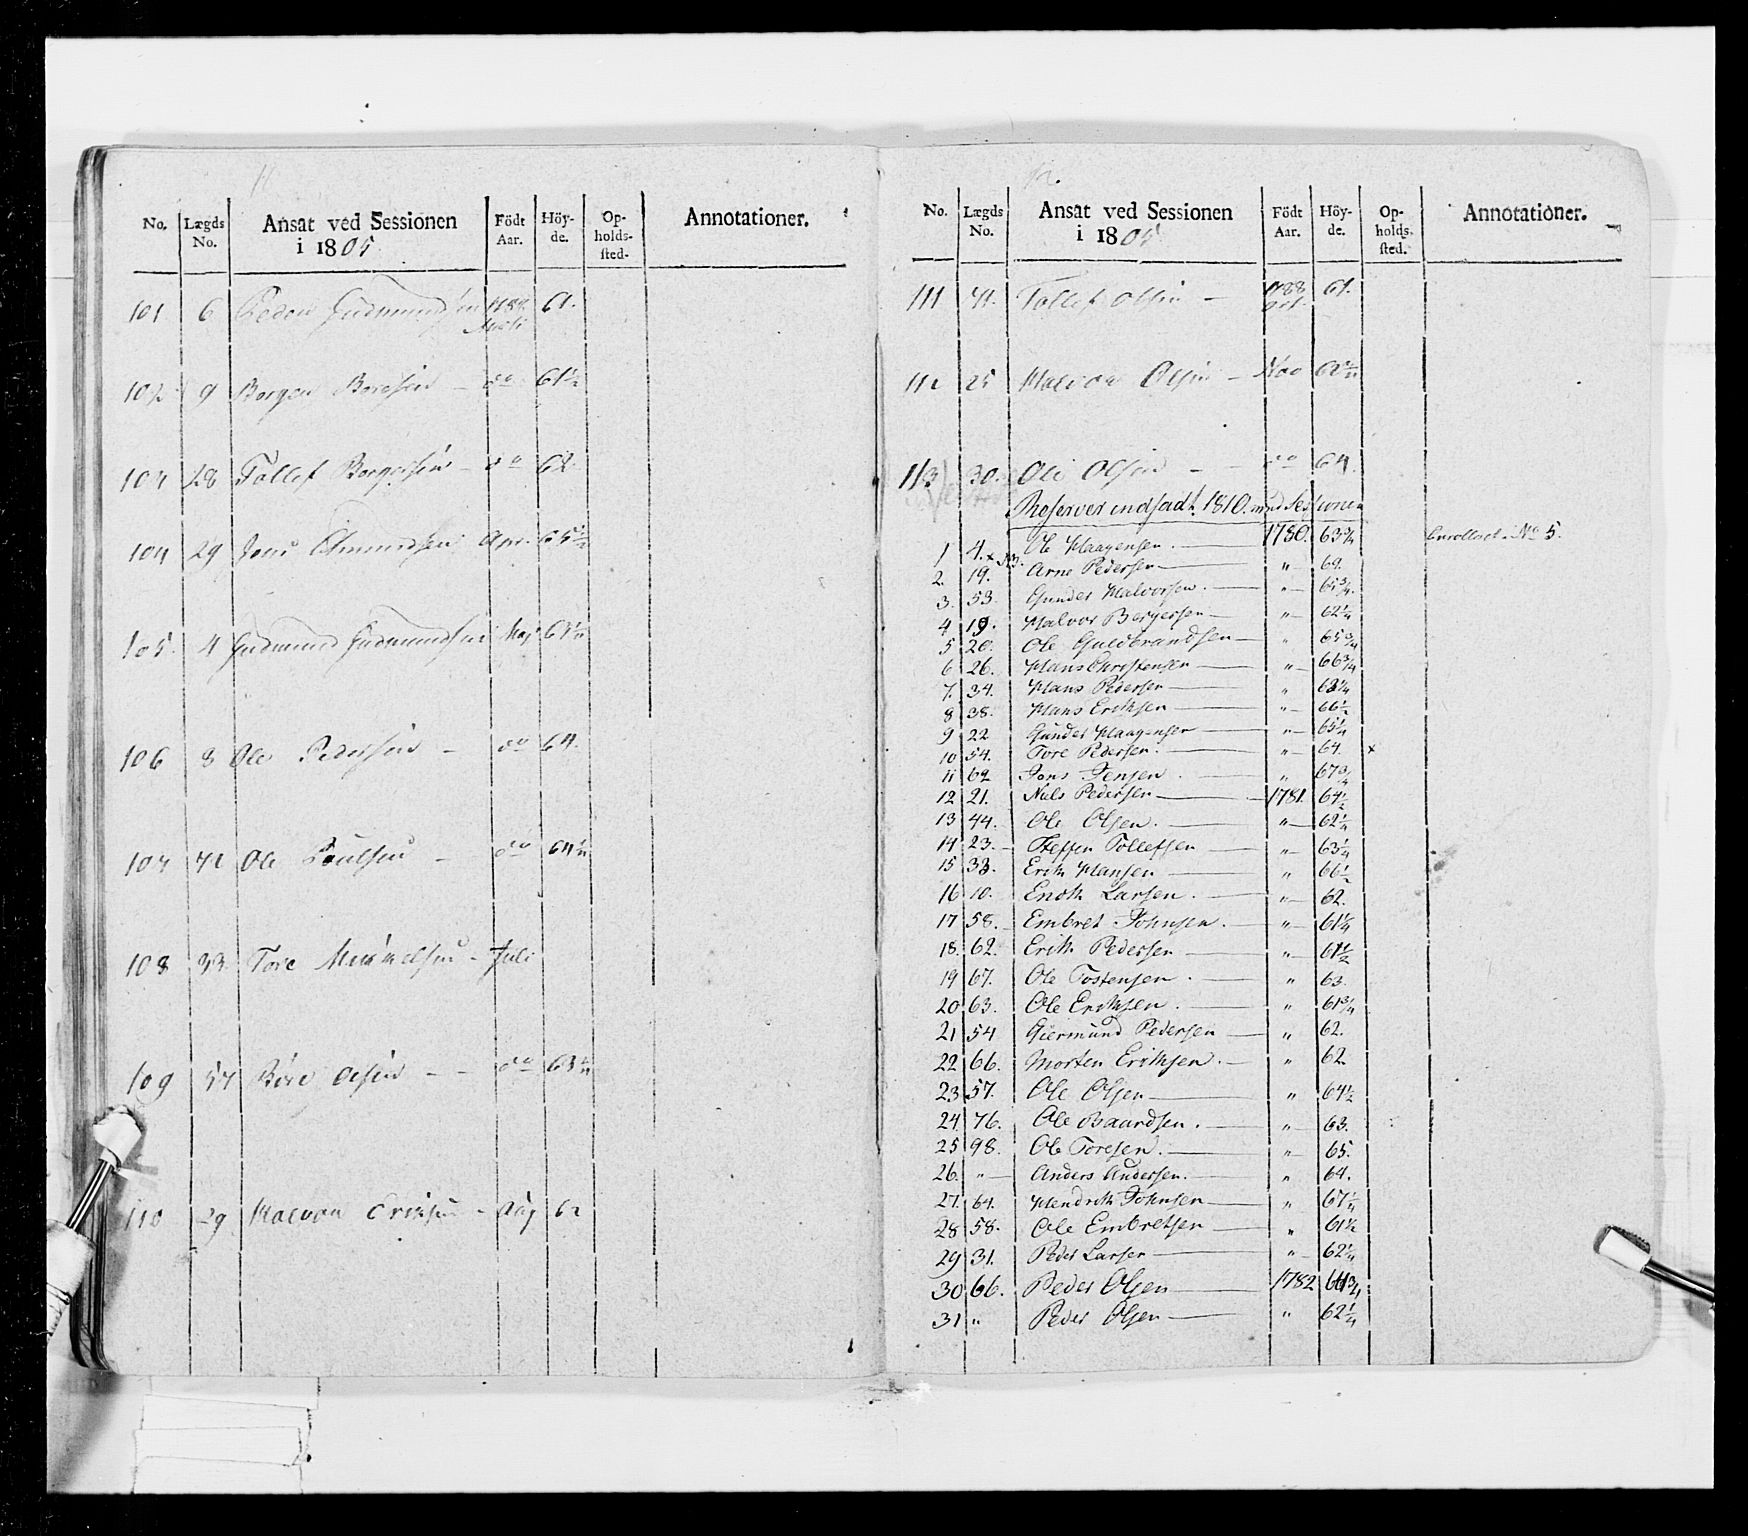 11
No. Lægds No. Ansat ved Sessionen i 1805 Födt Aar. Höy-de. Op-holds-sted. Annotationer.
101 6 Peder Gudmundsen 1788 Marti 61.
102 9 Borger Boresen – do 61½
103 28 Tollef Borgersen – do 62.
104 29 Jens Amundsen Apr. 65½
105. 4 Gudmund Gudmundsen Maj 61¼
106 8 Ole Pedersen – do 64.
107 42 Ole Poulsen – do 64¼
108 33. Tore Mikkelsen – Juli
109 57 Tore Olsen – – do 63¼
110 29 Halvor Eriksen – Aug 62
12.
No. Lægds No. Ansat ved Sessionen i 1805 Födt Aar. Höy-de. Op-holds-sted. Annotationer.
111 41. Tollef Olsen – 1788 Oct. 61.
112 25 Halvor Olsen – Nov 62¼
113 30. Ole Olsen – do 64.
Reserver indsadt 1810. ved Sessionen
1 4. x Ole Haagensen. — 1780. 63¾ Enrolleret. No 5.
2. 19. Arne Pedersen — " — 62.
3. 53. Gunder Halvorsen. — " — 65¾.
4 19. Halvor Bergersen — " — 62¼
5 20. Ole Guldbrandsen — " 65¾
6 26. Hans Christensen — " — 66¾
7. 34. Hans Pedersen — " 63¼
8 38. Hans Eriksen — " — 66½
9 22 Gunder Haagensen — " — 65¼
10 54. Tore Pedersen. — " — 64. x
11 62 Jens Jensen. — " 67¾
12 21. Niels Pedersen — 1781. 64½
13 44. Ole Olsen. — " — 62¼
14 23. – Steffen Tollefsen — " — 63¼
15 33. Erik Hansen — " 66½
16 10. Endr. Larsen. — " — 62.
17 58. – Embret Johnsen. — " — 61¼
18. 62. Erik Pedersen — " — 61½
19 67. Ole Tostensen. — " 63.
20 63. Ole Eriksen. — " 61¾
21 54 Giermund Pedersen — " 62.
22 66. Morten Eriksen. — " 62.
23 57. Ole Olsen — " 64½
24. 76. Ole Baardsen. — " — 63.
25 98. Ole Toresen. — " — 65.
26. " — Anders Andersen. — " 64.
27. 64. Hendrik Johnsen — " 67¼
28 58. Ole Embretsen — " 61½
29 31. Peder Larsen — " — 62¼
30 66. Peder Olsen — 1782 61¾
31 " Peder Olsen — " 62¼